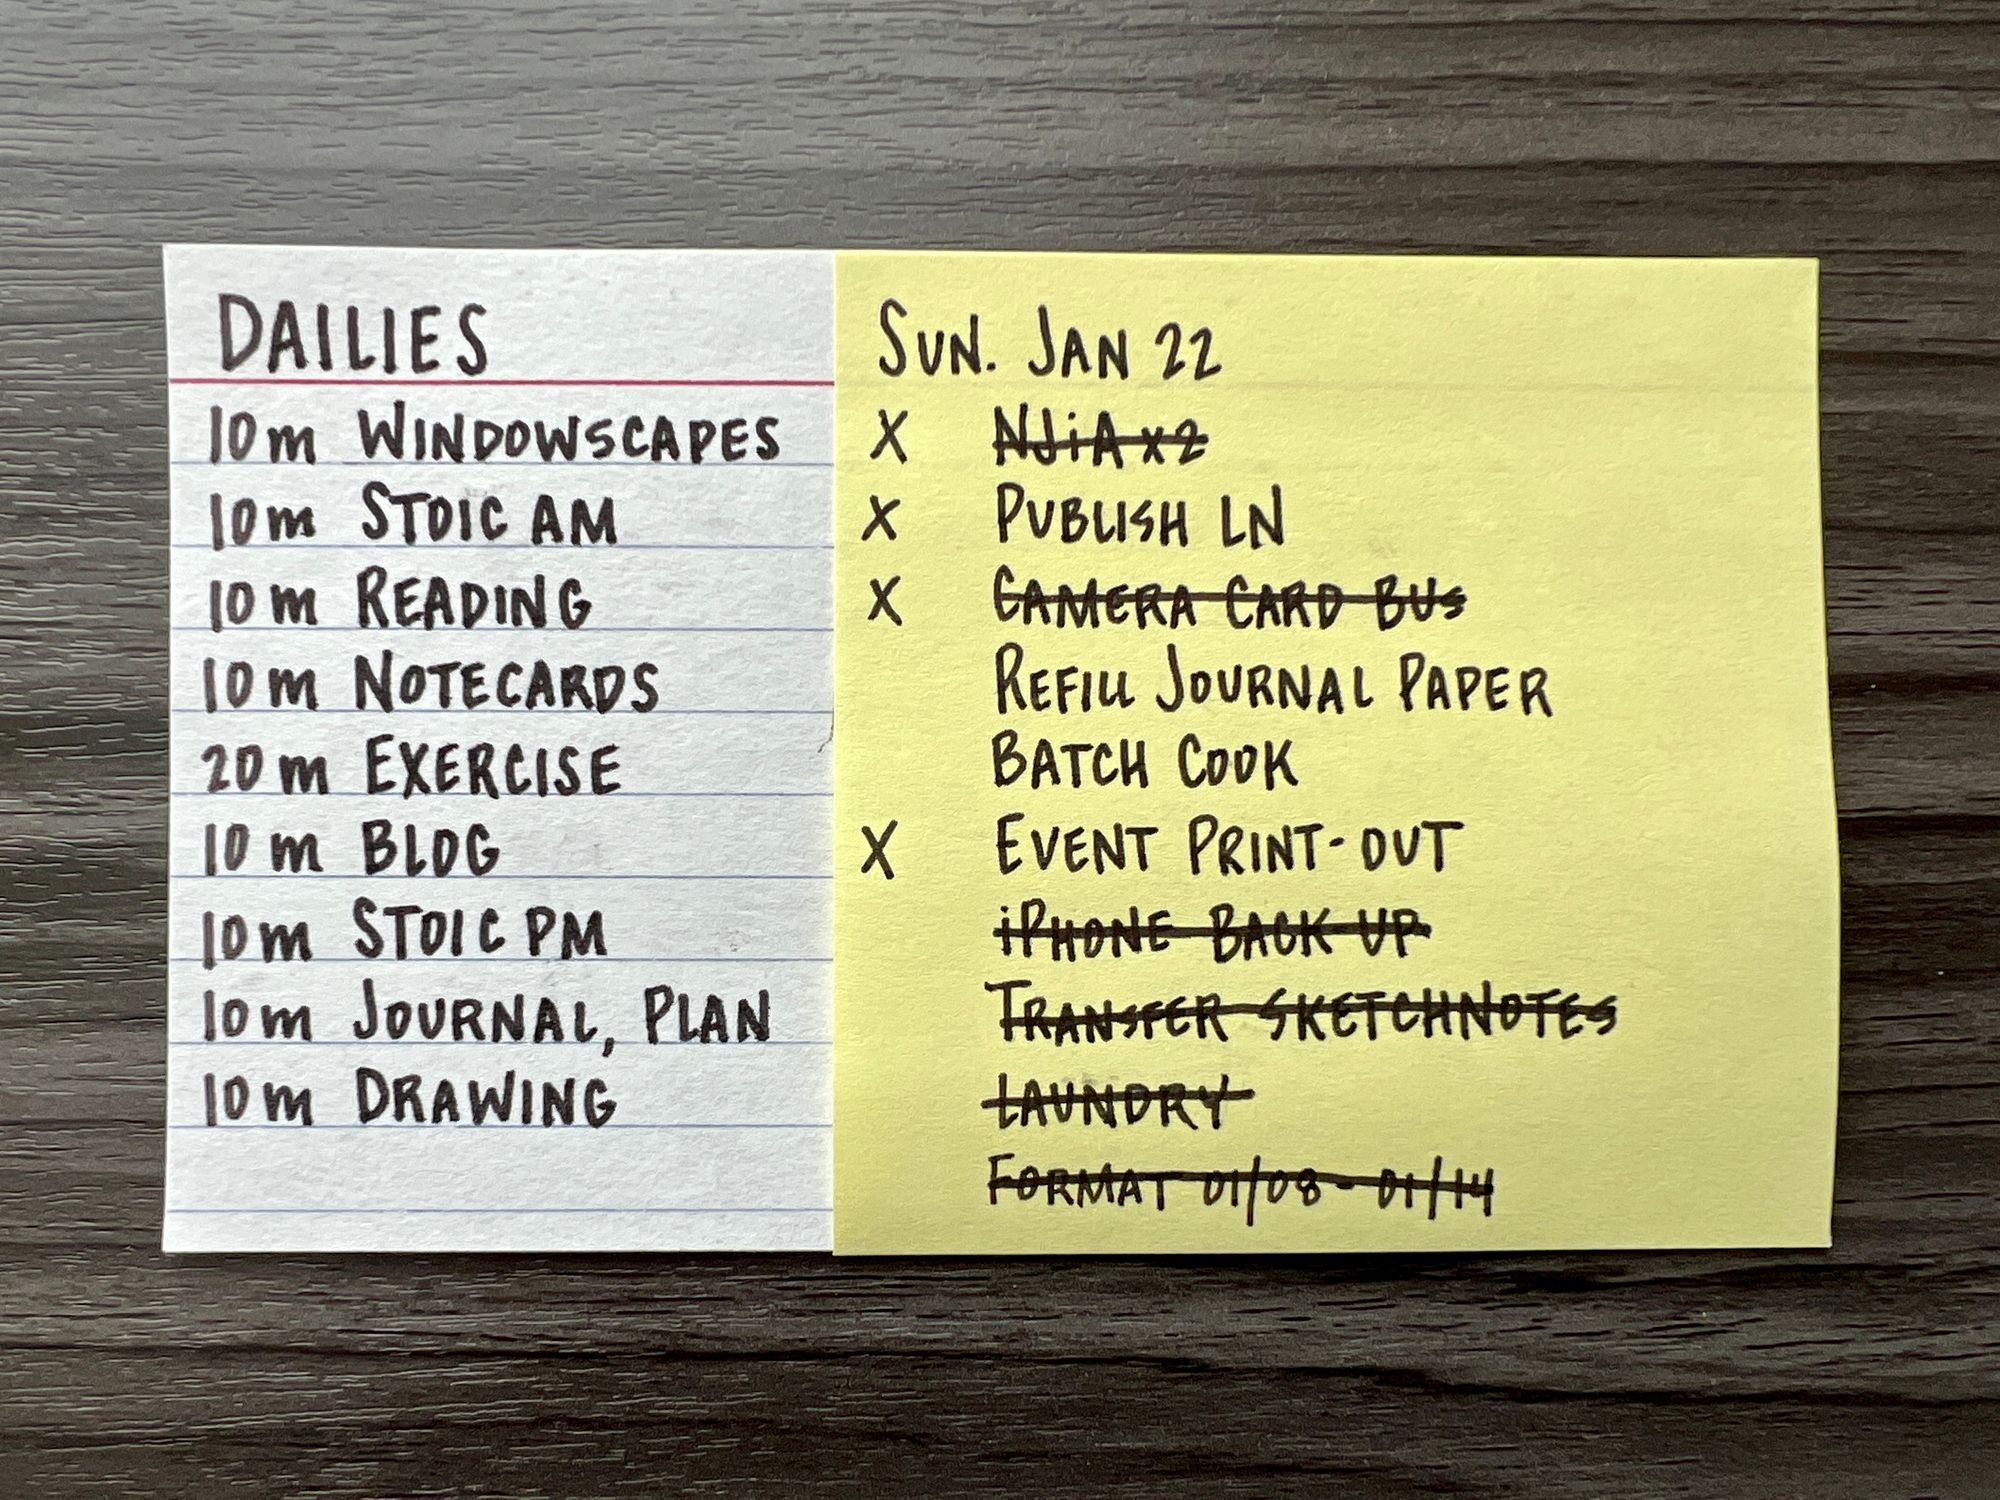 DAILIES
10m WINDOWSCAPES
10m STOIC AM
10m READING
10m NOTECARDS
20m EXERCISE
10m BLOG
10m STOIC PM
10m JOURNAL, PLAN
10m DRAWING
SUN. JAN 22
X NJiA x2
X PUBLISH LN
X CAMERA CARD BUS
REFILL JOURNAL PAPER
BATCH COOK
X EVENT PRINT-OUT
iPHONE BACK UP
TRANSFER SKETCHNOTES
LAUNDRY
FORMAT 01/08 - 01/14